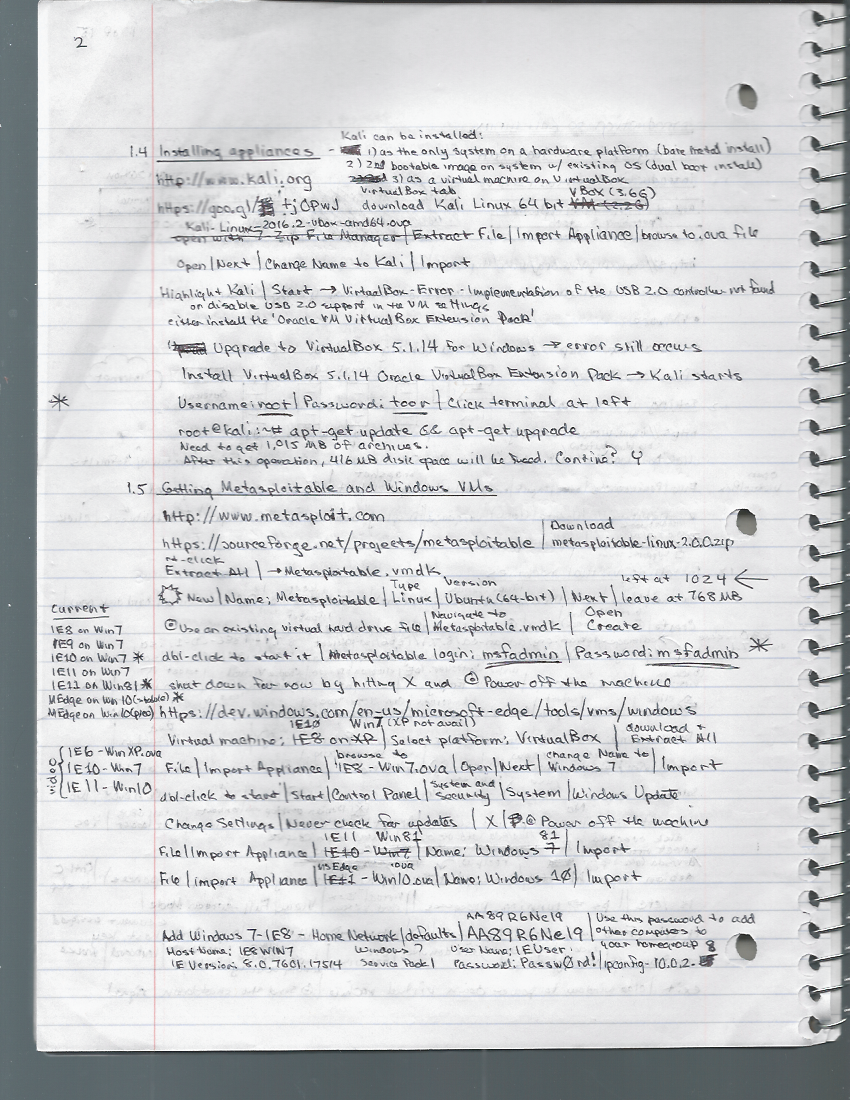 2
Kali can be installed:
1.4 Installing appliances - 1) as the only system on a hardware platform (bare metal install)
2) 2nd bootable image on system w/ existing OS (dual boot install)
http://www.kali.org 3) as a virtual machine on VirtualBox
VirtualBox tab VBox (3.6G)
https://goo.gl/ tjOPwJ download Kali Linux 64 bit VM (2.2G)
Kali-Linux-2016.2-vbox-amd64.ova
open with 7-Zip File Manager | Extract File | Import Appliance | browse to .ova file
Open | Next | Change Name to Kali | Import
Highlight Kali | Start → VirtualBox-Error - Implementation of the USB 2.0 controller not found
or disable USB 2.0 support in the VM settings
either install the 'Oracle VM VirtualBox Extension Pack'
Upgrade to VirtualBox 5.1.14 for Windows → error still occurs
Install VirtualBox 5.1.14 Oracle VirtualBox Extension Pack → Kali starts
* Username: root | Password: toor | Click terminal at left
root@kali:~# apt-get update && apt-get upgrade
Need to get 1,015 MB of archives.
After this operation, 416 MB disk space will be freed. Contine? Y
1.5 Getting Metasploitable and Windows VMs
http://www.metasploit.com
https://sourceforge.net/projects/metasploitable | Download metasploitable-linux-2.0.0.zip
rt-click
Extract All | → Metasploitable.vmdk
Type Version left at 1024 ←
New | Name: Metasploitable | Linux | Ubuntu (64-bit) | Next | leave at 768 MB
Navigate to Open
Use an existing virtual hard drive file | Metasploitable.vmdk | Create
dbl-click to start it | Metasploitable login: msfadmin | Password: msfadmin *
shut down for now by hitting X and Power off the machine
Current
IE8 on Win7
IE9 on Win7
IE10 on Win7 *
IE11 on Win7
IE11 on Win81 *
MEdge on Win10 (stable) *
MEdge on Win10 (pre)
https://dev.windows.com/en-us/microsoft-edge/tools/vms/windows
IE10 Win7 (XP not avail)
Virtual machine: IE8 on XP | Select platform: VirtualBox | download + Extract All
video
IE6-WinXP.ova
IE10-Win7
IE11-Win10
browse to change Name to
File | Import Appliance | IE8-Win7.ova | Open | Next | Windows 7 | Import
dbl-click to start | Start | Control Panel | System and Security | System | Windows Update
Change Settings | Never check for updates | X | Power off the machine
IE11 Win81 81
File | Import Appliance | IE10-Win7 | Name: Windows 7 | Import
MSEdge .ova
File | import Appliance | IE11-Win10.ova | Name: Windows 10 | Import
AA89R6Ne19
Add Windows 7-IE8 - Home Network | defaults | AA89R6Ne19 | Use this password to add other computers to your homegroup
Host Name: IE8WIN7 Windows 7 User Name: IEUser
IE Version: 8.0.7601.17514 Service Pack 1 Password: Passw0rd! | ipconfig - 10.0.2.